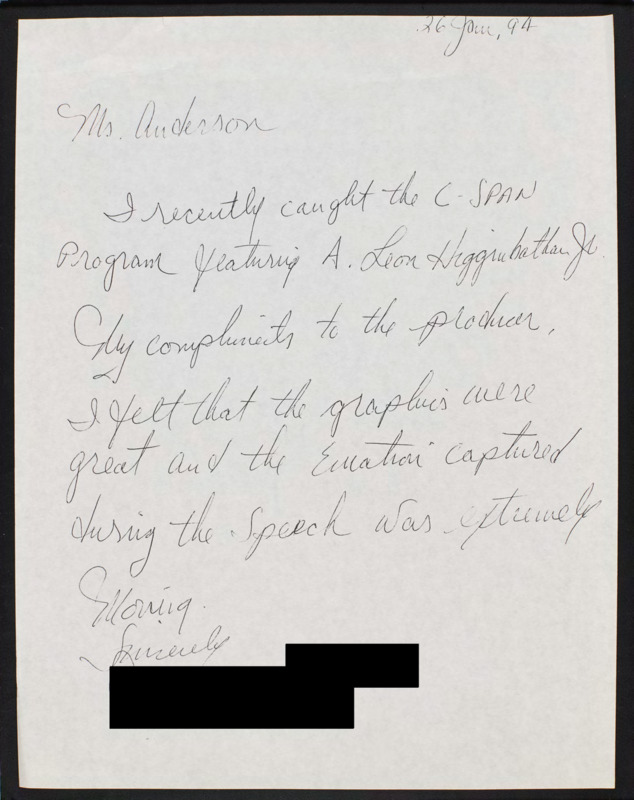 26 Jan, 94
Ms. Anderson
I recently caught the C-SPAN
Program featuring A. Leon Higginbotham Jr.
My compliments to the producer.
I felt that the graphics were
great and the Emotion captured
during the Speech was extremely
Moving.
Sincerely